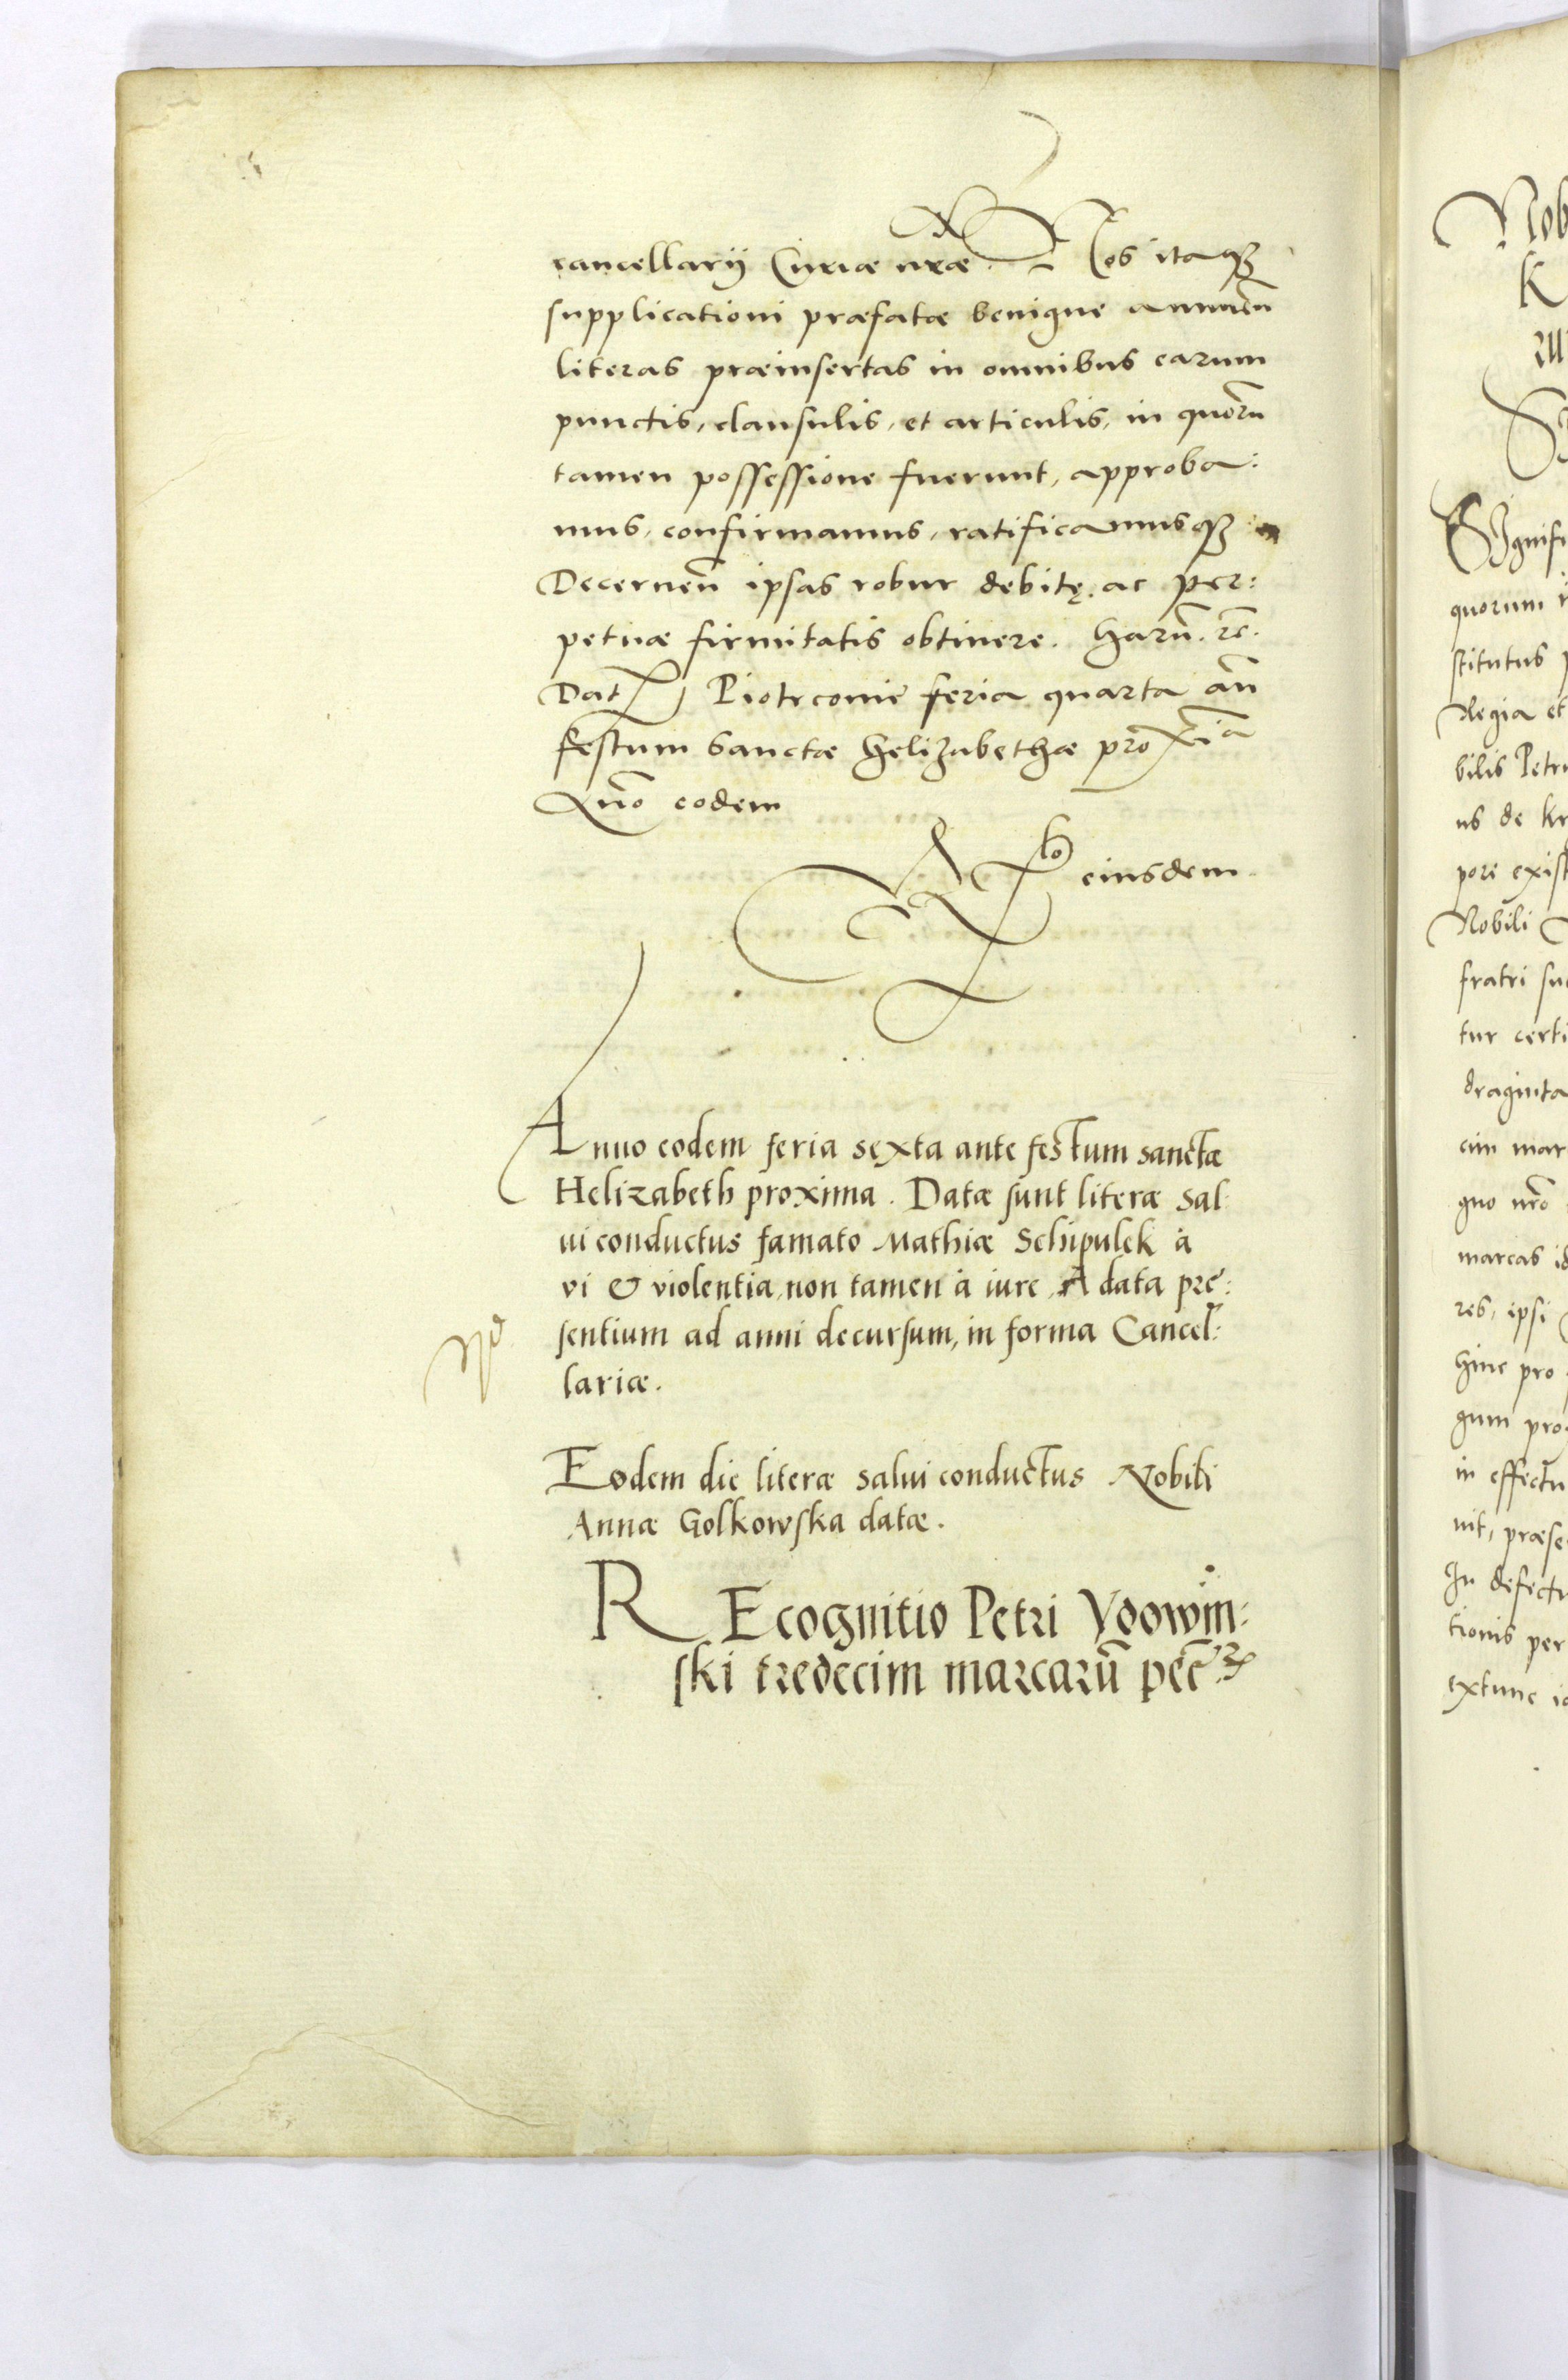 cancellarij Curiæ nræ. Nos itaqȝ
supplicationi præfatæ benigne annuen̄
literas præinsertas in omnibus earum
punctis, clausulis, et articulis, in quorū
tamen possessione fuerunt, approba:
mus, confirmamus, ratificamusqȝ
Decernen̄ ipsas robur debitę. ac per:
petuæ firmitatis obtinere. Harū. rē.
Dat Piotrconie feria quarta an̄
festum Sanctæ Helizabethæ proxīa
Anō eodem
eiusdem.
Anno eodem feria sexta ante festum sanctæ
Helizabeth proxima. Datæ sunt literæ sal
ui conductus famato Mathiæ Schipulek à
vi & violentia, non tamen à iure, A data præ:
sentium ad anni decursum, in forma Cancel:
lariæ.
Eodem die literæ salui conductus Nobili
Annæ Golkowska datæ.
REcognitio Petri Voowin:
ski tredecim marcarū pēc
Nob
K
Signifi
quorum
stitutus
Regia et
bilis Petru
us de kr
pore exist
Nobili
fratri su
tur certi
draginta
cim mar
quo nrō
marcas id
res, ipsi
hinc pro
gum pro
in effectu
nit, præse
In defectu
tionis per
extunc